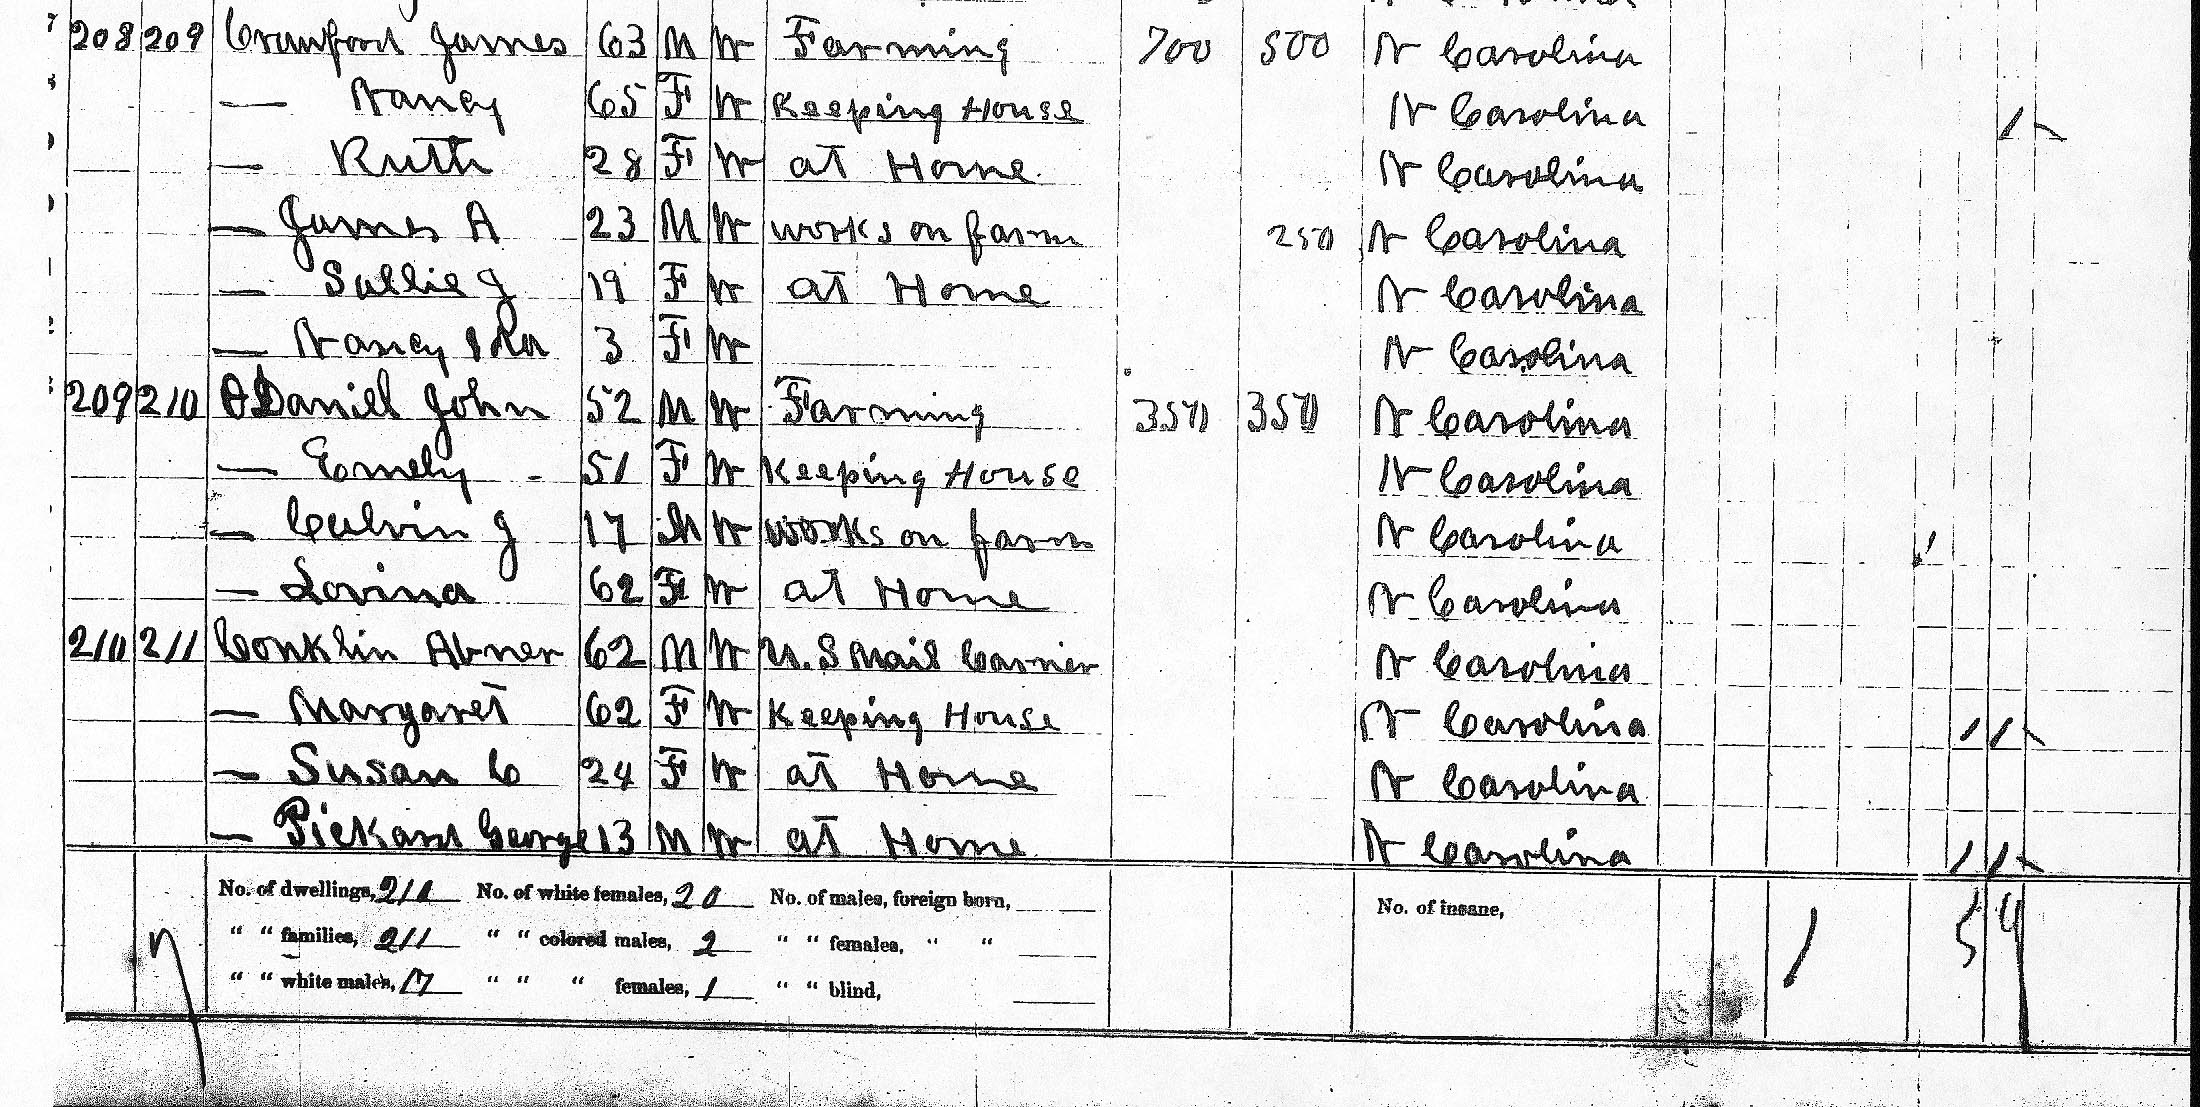 208 209 Crawford James 63 M W Farming 700 500 N Carolina
— Nancy 65 F W Keeping House N Carolina 1
— Ruth 28 F W at Home N Carolina
— James A 23 M W works on farm 250 N Carolina
— Sallie J 19 F W at Home N Carolina
— Nancy Ida 3 F W N Carolina
209 210 O Daniel John 52 M W Farming 350 350 N Carolina
— Emely 51 F W Keeping House N Carolina
— Calvin J 17 M W works on farm N Carolina 1
— Lovina 62 F W at Home N Carolina
210 211 Conklin Abner 62 M W U.S Mail Carrier N Carolina
— Margaret 62 F W Keeping House N Carolina 1 1
— Susan C 24 F W at Home N Carolina
— Pickard George 13 M W at Home N Carolina 1 1
No. of dwellings, 210 No. of white females, 20 No. of males, foreign born, No. of insane,
" " families, 211 " " colored males, 2 " " females, " " 1 5 9
" " white males, 17 " " " females, 1 " " blind,